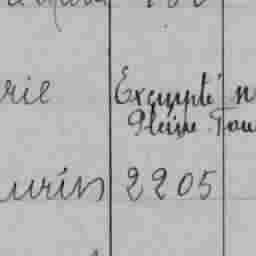 rie Exempté n
Pleine Fou
urin 2205